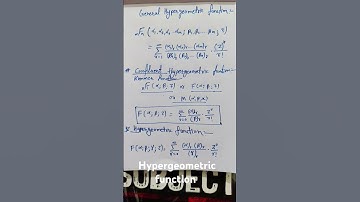 General Hypergeometric function:-
nFm (α₁, α₂, α₃ ... αn; β₁, β₂ ... βm; z)
= ∑ r=0 ∞ (α₁)r (α₂)r ... (αn)r / (β₁)r (β₂)r ... (βm)r z^r / r!
Confluent Hypergeometric function
Kummer function
F(α; β; z) or F(α; β; z)
or M(α, β, z)
F(α; β; z) = ∑ r=0 ∞ (α)r / (β)r z^r / r!
Hypergeometric function:-
F(α, β; γ; z) = ∑ r=0 ∞ (α)r (β)r / (γ)r z^r / r!
Hypergeometric
function
SUBJECT